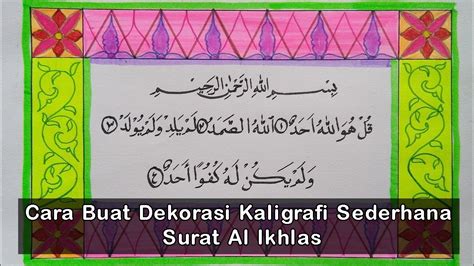 بِسْمِ اللهِ الرَّحْمٰنِ الرَّحِيْمِ
قُلْ هُوَ اللهُ اَحَدٌ ١ اَللهُ الصَّمَدُ ٢ لَمْ يَلِدْ وَلَمْ يُوْلَدْ ٣
وَلَمْ يَكُنْ لَهُ كُفُوًا اَحَدٌ ٤
Cara Buat Dekorasi Kaligrafi Sederhana
Surat Al Ikhlas